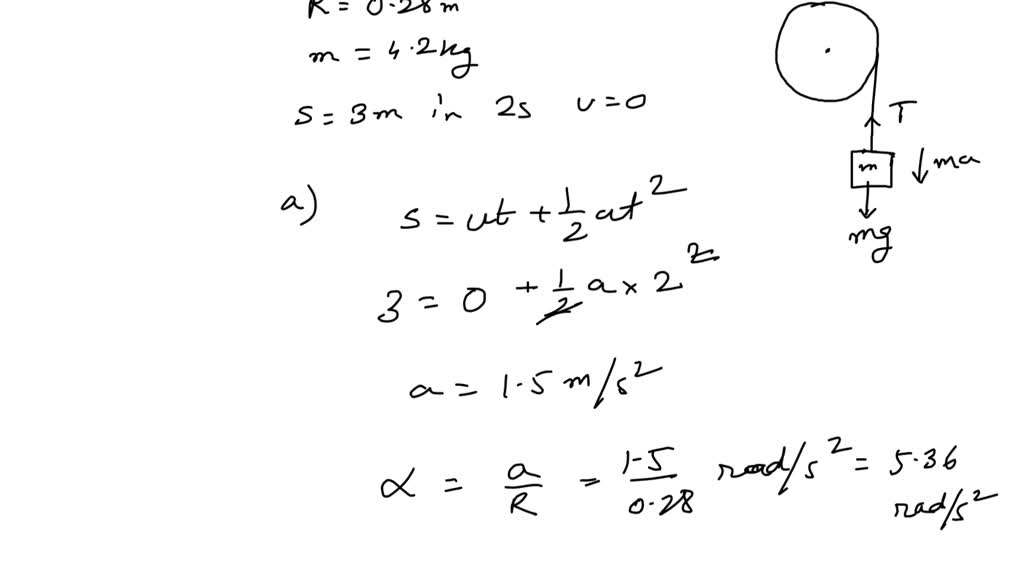 R = 0.28 m
m = 4.2 kg
s = 3m in 2s u = 0
T
m
ma
mg
a) s = ut + 1/2 at^2
3 = 0 + 1/2 a × 2^2
a = 1.5 m/s^2
α = a/R = 1.5/0.28 rad/s^2 = 5.36
rad/s^2